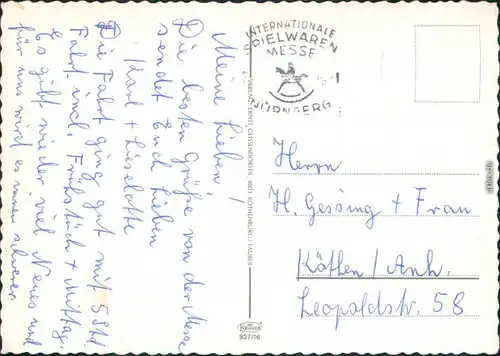 Meine Lieben!
Die besten Grüße von der Messe
sendet Euch Lieben
Karl + Lieselotte
Die Fahrt ging gut mit 5 Std.
Fahrt incl. Frühstück + Mittag.
Es gibt wieder viel Neues und
für uns wird es immer schwerer
INTERNATIONALE
SPIELWAREN
MESSE
NÜRNBERG
VERLAG ERNST GEISSENDÖRFER, 8803 ROTHENBURG / TAUBER
KRÜGER
927/16
Herrn
H. Gessing + Frau
Köthen / Anh.
Leopoldstr. 58